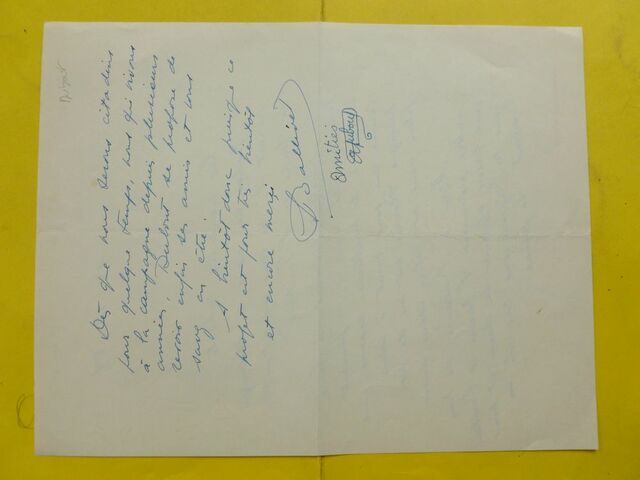 Dès que nous serons citadins
pour quelque temps, nous qui vivons
à la campagne depuis plusieurs
années, Dubout se propose de
revoir enfin ses amis et vous
savez en être.
A bientôt donc puisque ce
projet est pour très bientôt
et encore merci
Ballivet
Amitiés
Dubout